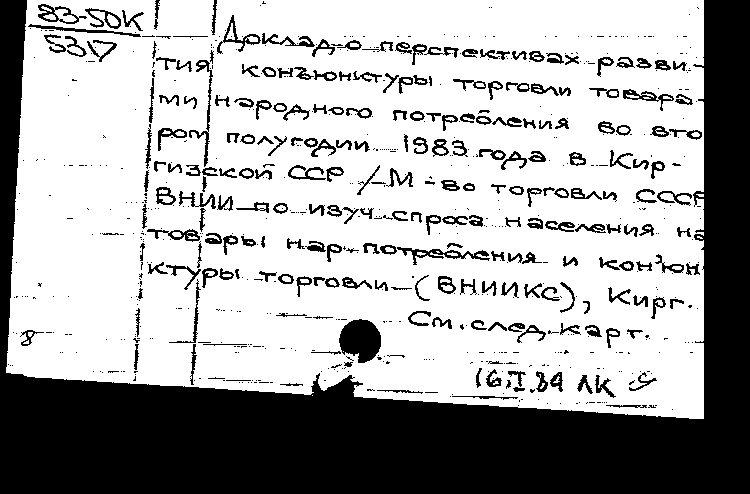 83-50К
Доклад о перспективах разви-
тия конъюнктуры торговли товара-
ми народного потребления во вто
ром полугодии 1983 года в Кир-
гизской ССР /–М-во торговли СССР
ВНИИ по изуч. спроса населения на
товары нар. потребления и конъюн
ктуры торговли–(ВНИИКС), Кирг.
См. след. карт.
8
16.I.84 ЛК